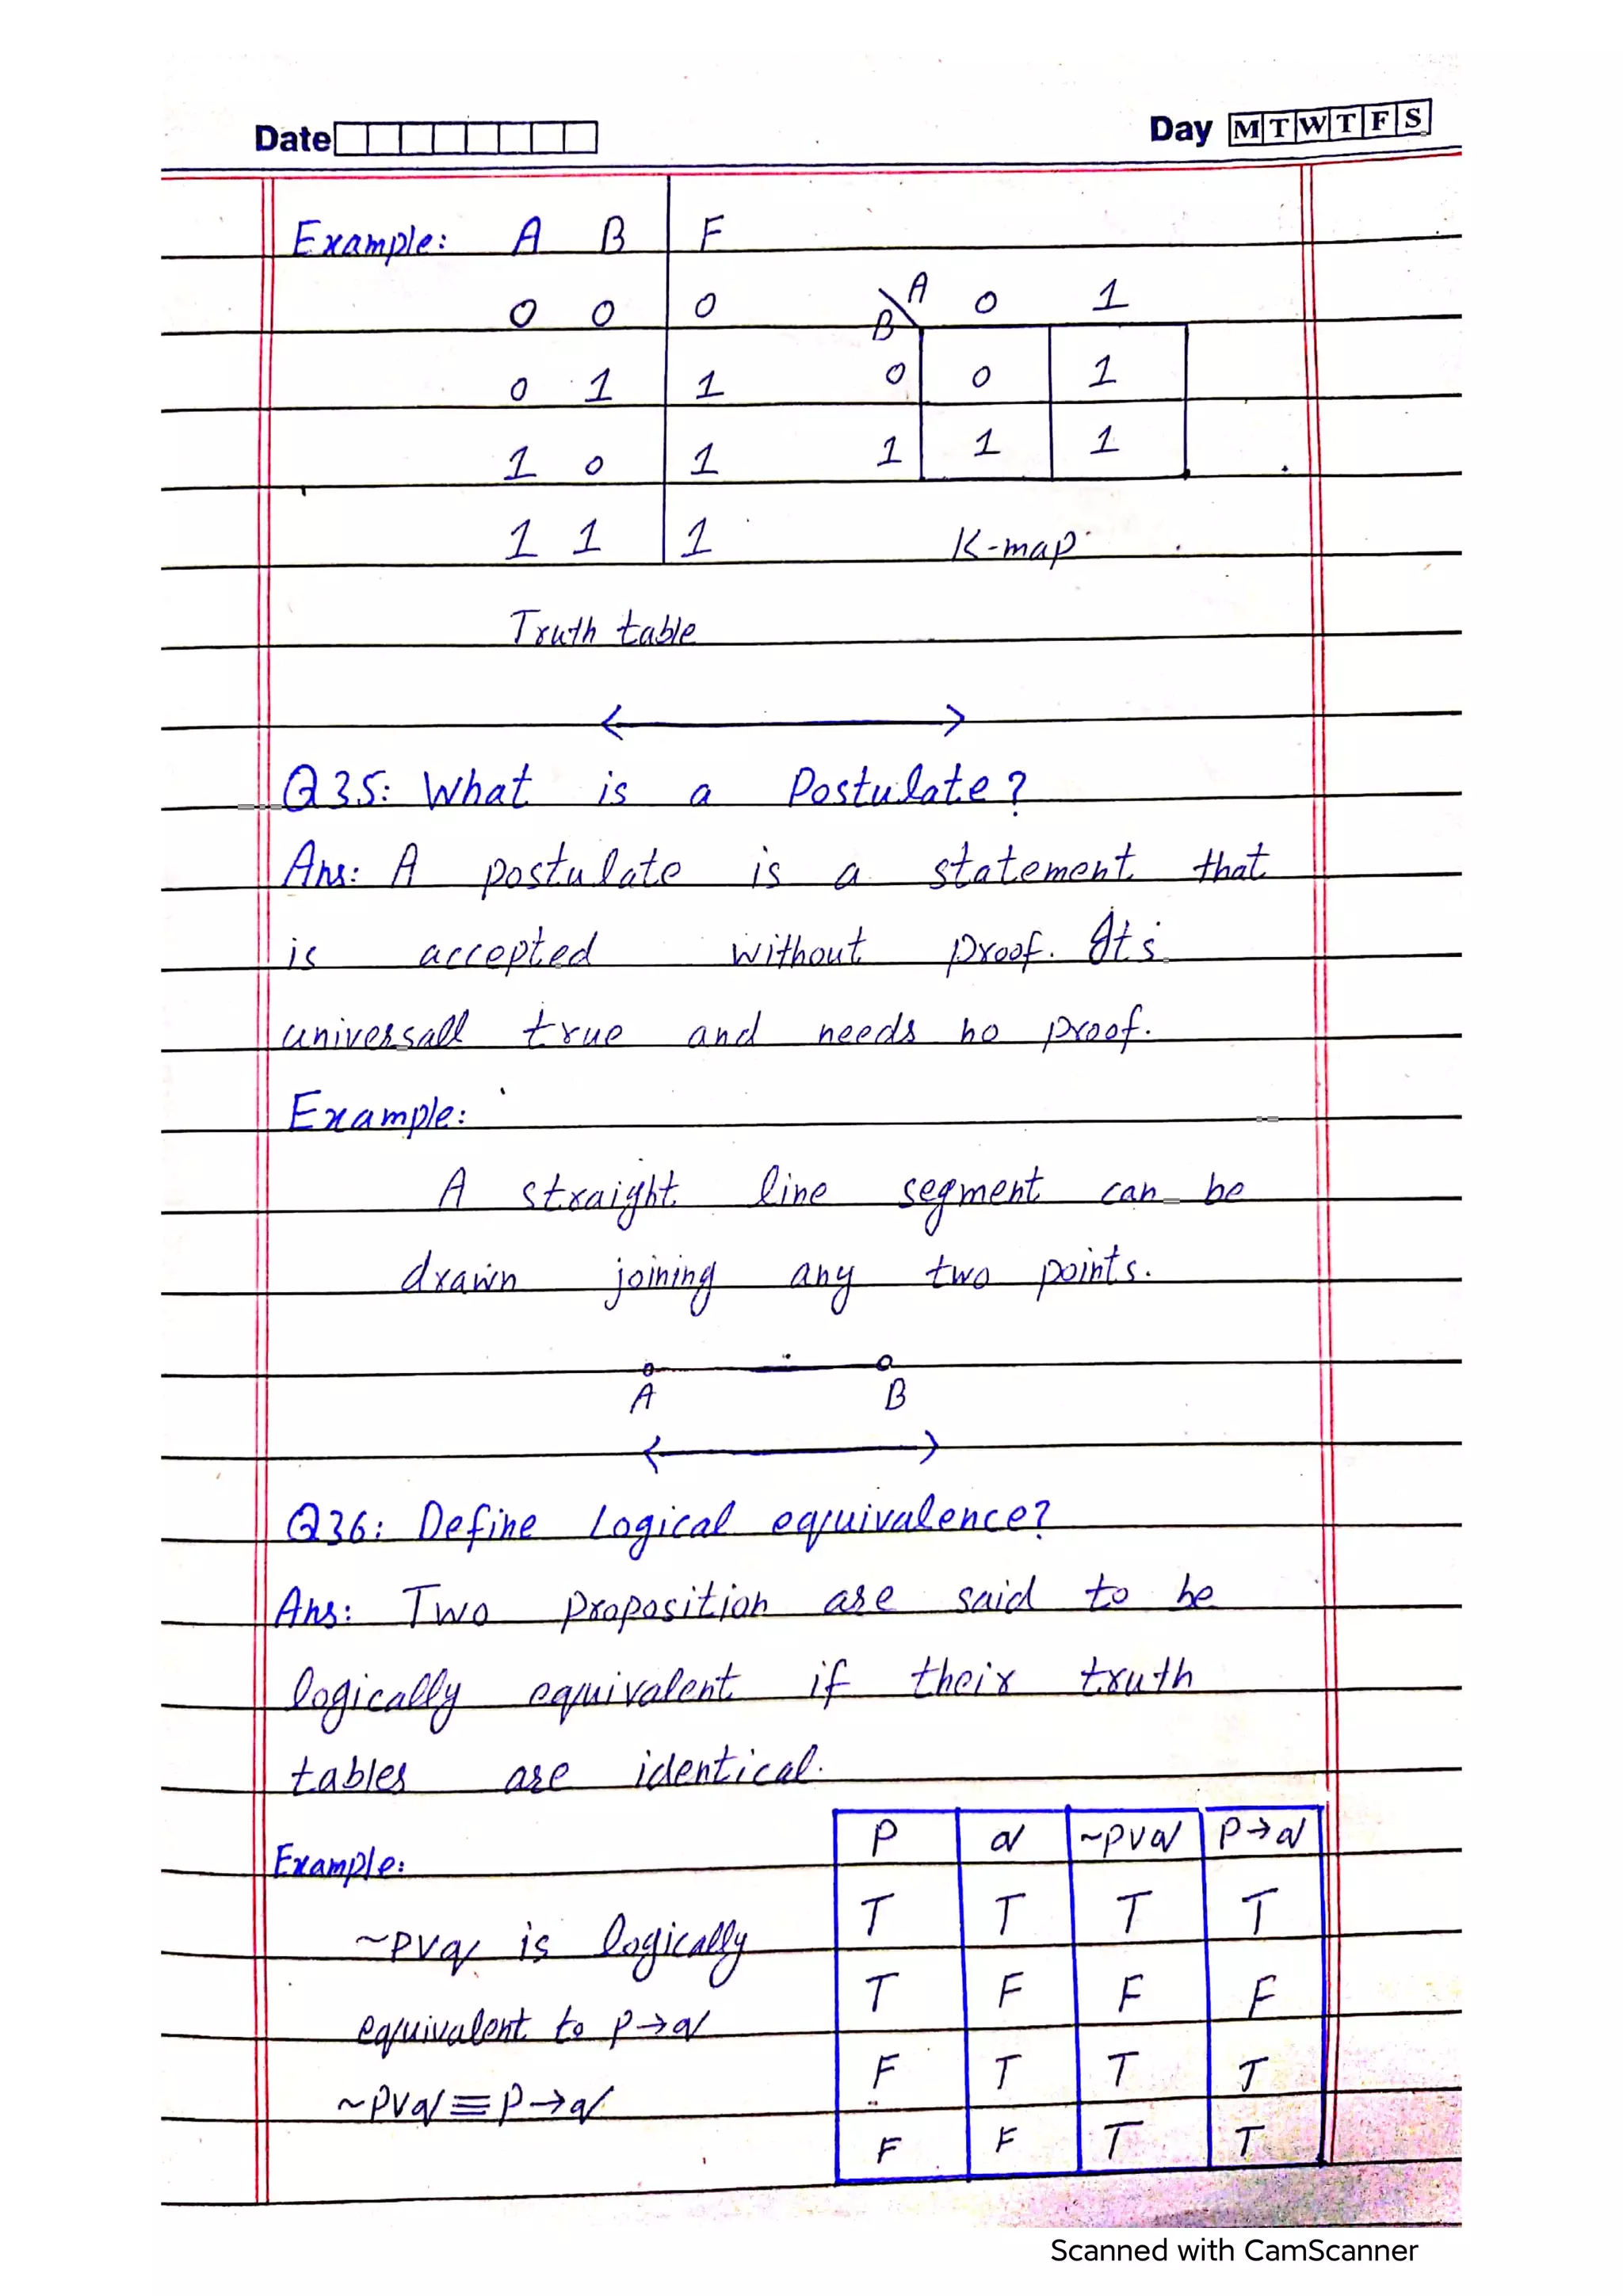 Date Day M T W T F S
Example: A B F
0 0 0
0 1 1
1 0 1
1 1 1
Truth table
A 0 1
B
0 0 1
1 1 1
K-map
Q35: What is a Postulate?
Ans: A postulate is a statement that
is accepted without proof. Its
universall true and needs no proof.
Example:
A straight line segment can be
drawn joining any two points.
A B
Q36: Define Logical equivalence?
Ans: Two proposition are said to be
logically equivalent if their truth
tables are identical.
Example:
~pvq is logically
equivalent to p→q
~pvq≡p→q
P q ~pvq p→q
T T T T
T F F F
F T T T
F F T T
Scanned with CamScanner